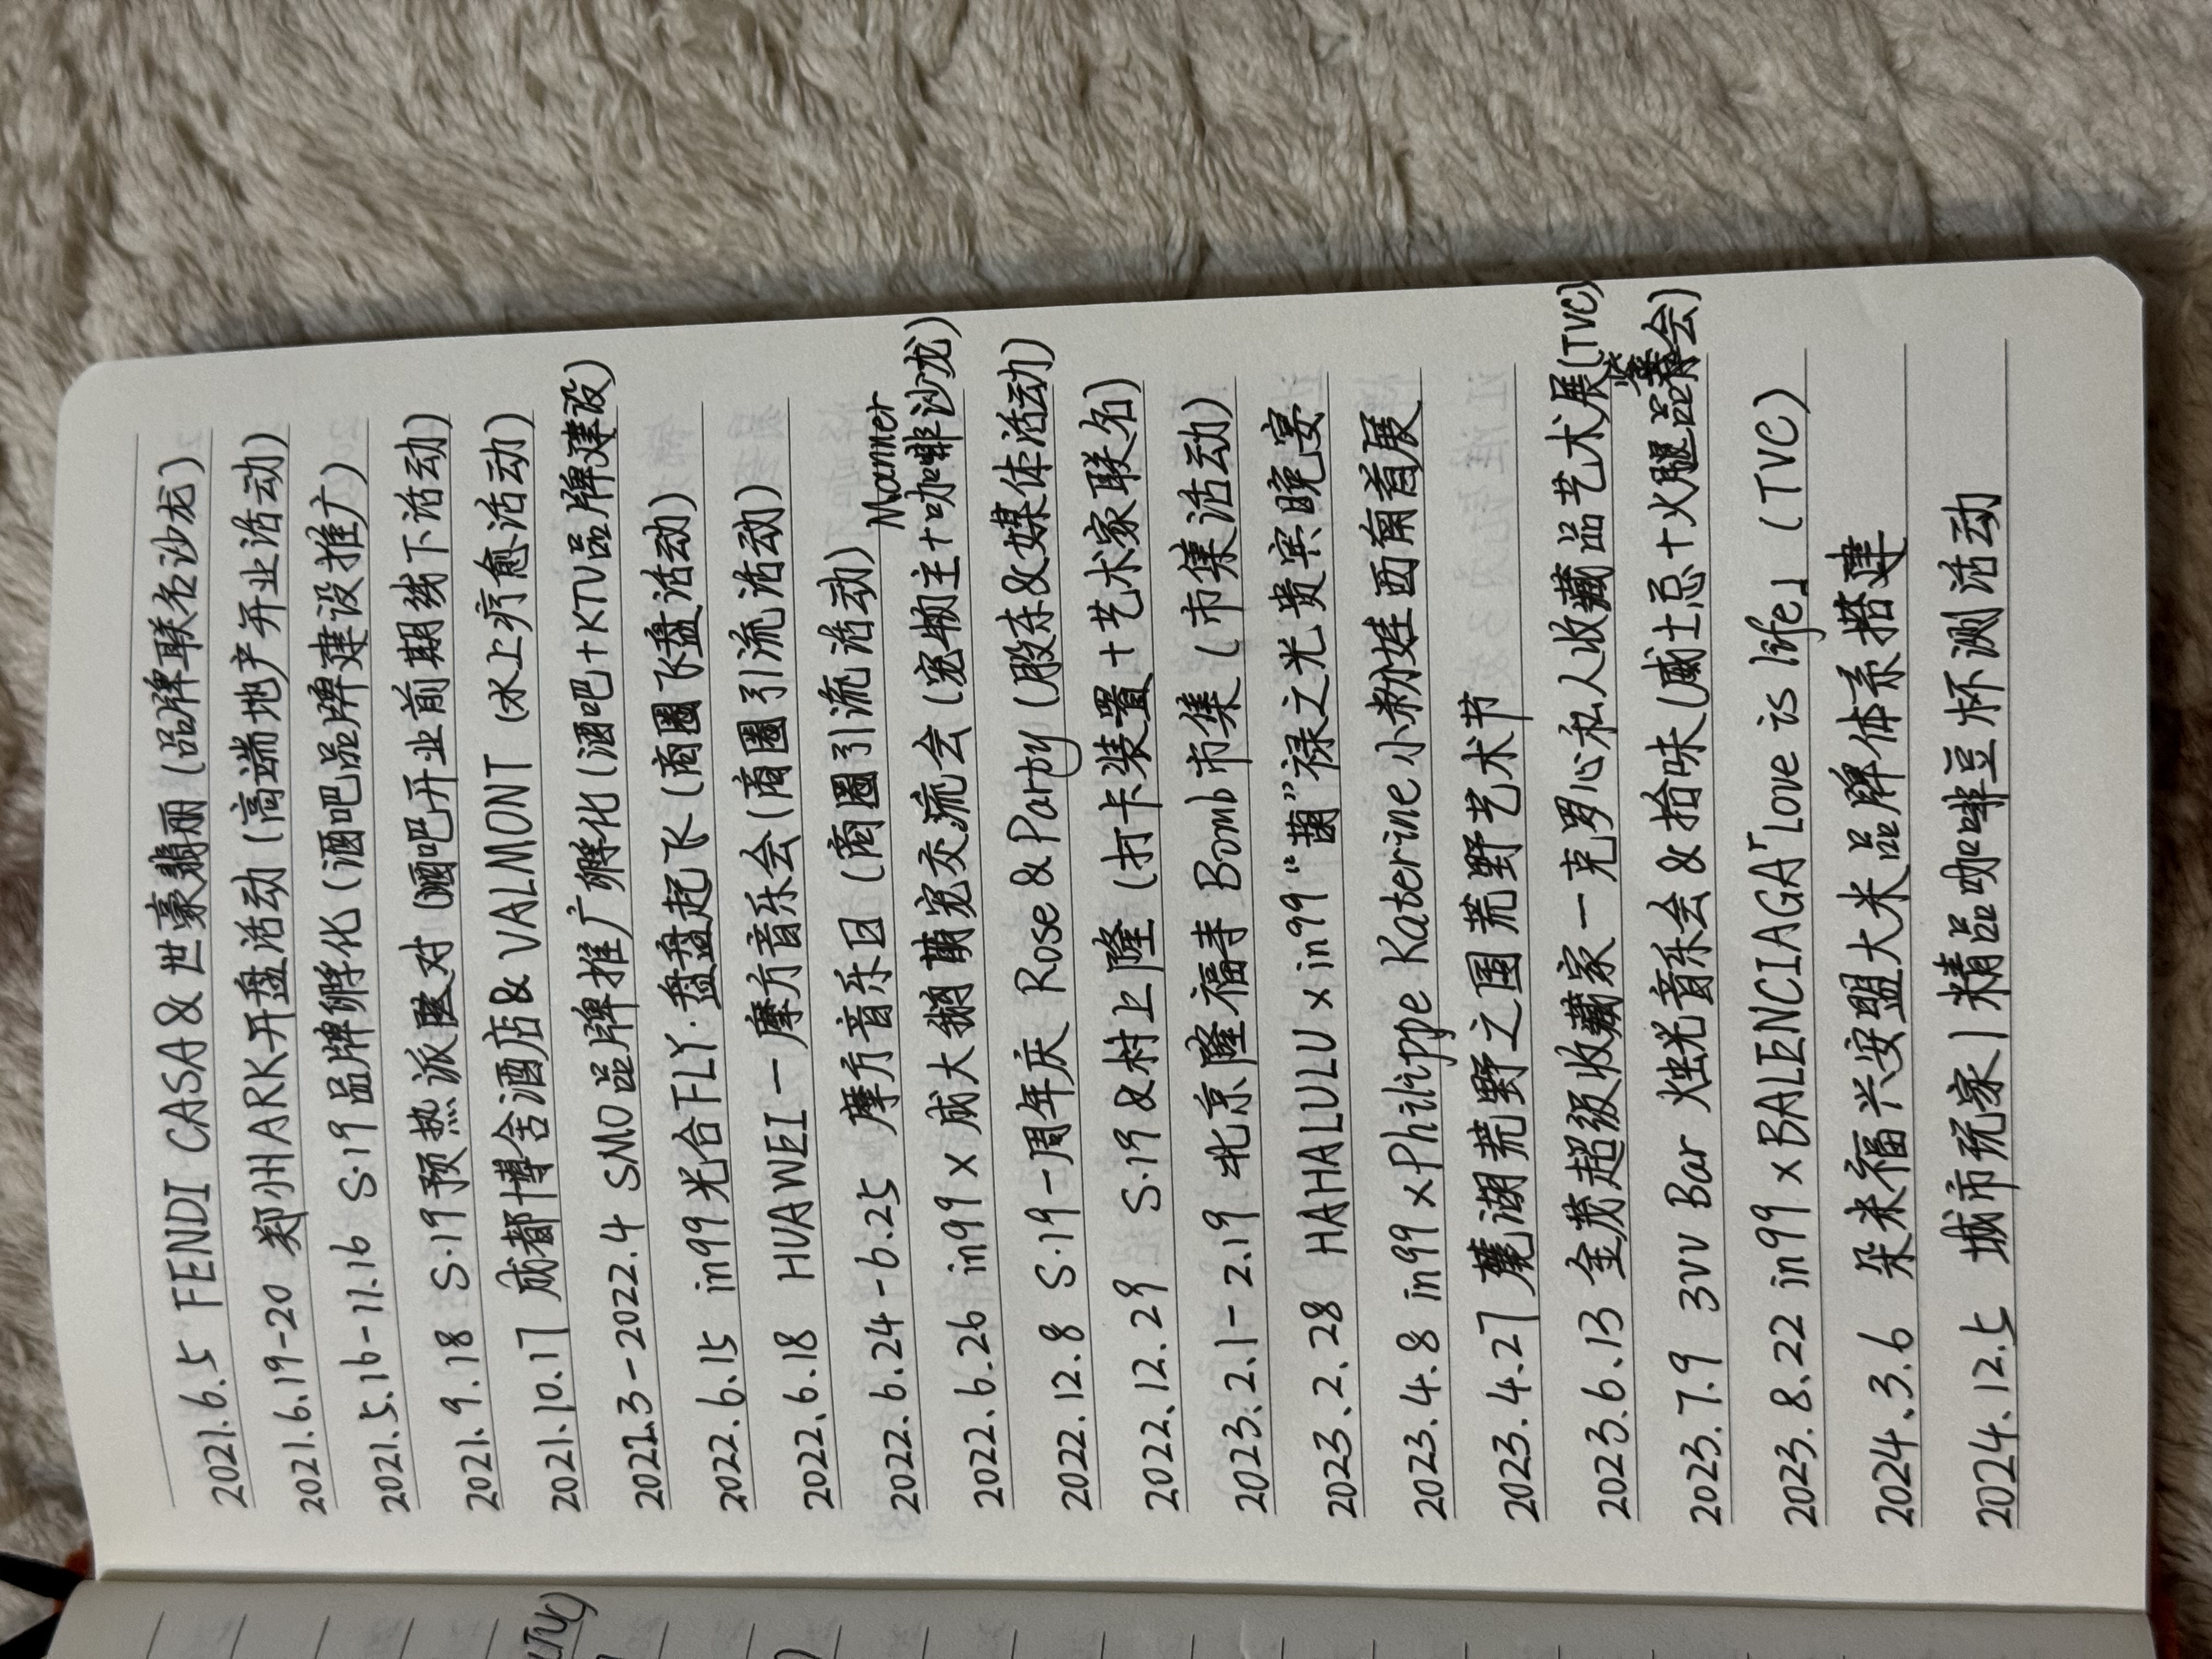 2021.6.5 FENDI CASA & 世豪翡丽 (品牌联名沙龙)
2021.6.19-20 郑州ARK开盘活动 (高端地产开业活动)
2021.5.16-11.16 S·19品牌孵化 (酒吧品牌建设推广)
2021.9.18 S·19预热派对 (酒吧开业前期线下活动)
2021.10.17 成都博舍酒店 & VALMONT (水上疗愈活动)
2021.3-2022.4 SMO品牌推广孵化 (酒吧+KTV品牌建设)
2022.6.15 in99光合FLY·盘盘起飞 (商圈飞盘活动)
2022.6.18 HUAWEI—摩方音乐会 (商圈引流活动)
2022.6.24-6.25 摩方音乐日 (商圈引流活动)
Manner
2022.6.26 in99 x 成大 萌宠交流会 (宠物主+咖啡沙龙)
2022.12.8 S·19一周年庆 Rose & Party (股东&媒体活动)
2022.12.29 S·19 & 村上隆 (打卡装置+艺术家联名)
2023.2.1-2.19 北京隆福寺 Bomb市集 (市集活动)
2023.2.28 HAHALULU x in99 “菌”禄之光贵宾晚宴
2023.4.8 in99 x Philippe Katerine 小粉娃西南首展
2023.4.27 麓湖荒野之国荒野艺术节
2023.6.13 金茂超级收藏家—克罗心私人收藏品艺术展(TVC)
2023.7.9 3VV Bar 烛光音乐会 & 拾味 (威士忌+火腿品鉴会)
2023.8.22 in99 x BALENCIAGA「Love is life」(TVC)
2024.3.6 朵米福兴安盟大米品牌体系搭建
2024.12.5 城市玩家|精品咖啡豆杯测活动
KTV)
)